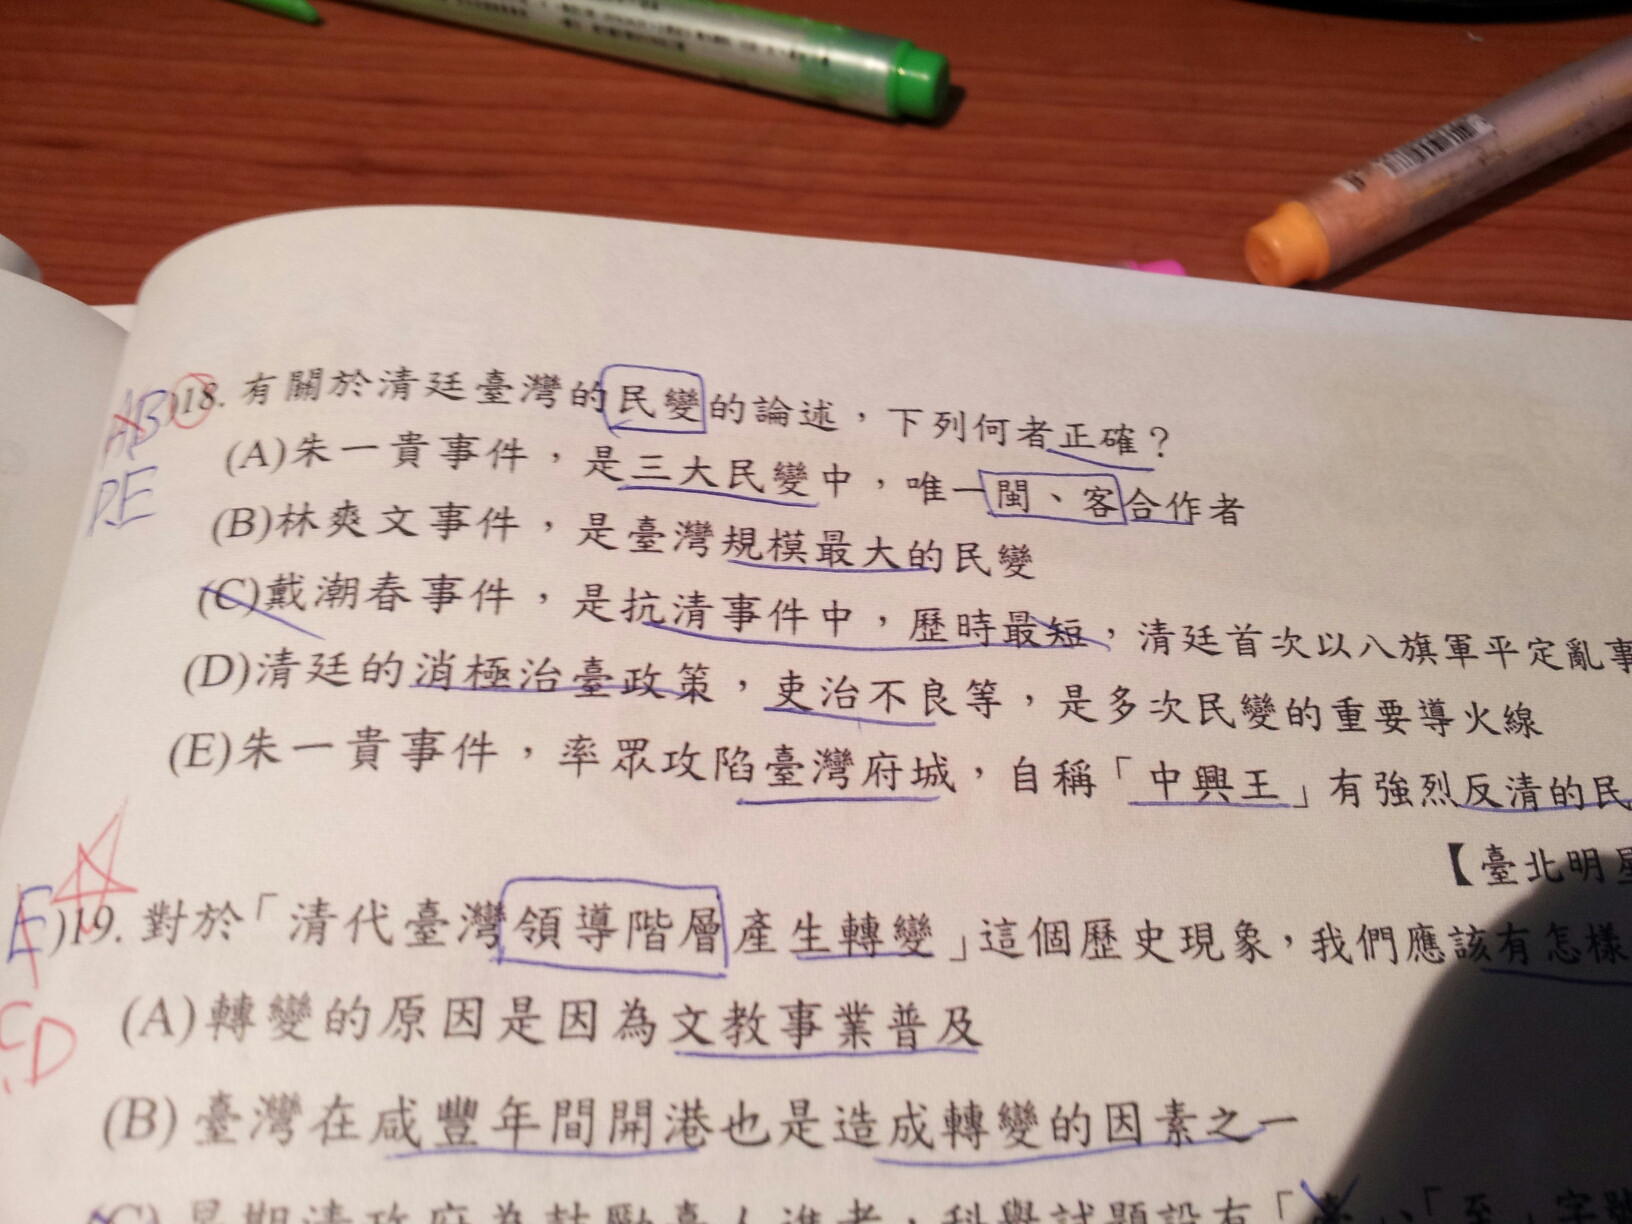 AB
18. 有關於清廷臺灣的民變的論述，下列何者正確？
D.E
(A)朱一貴事件，是三大民變中，唯一閩、客合作者
(B)林爽文事件，是臺灣規模最大的民變
(C)戴潮春事件，是抗清事件中，歷時最短，清廷首次以八旗軍平定亂事
(D)清廷的消極治臺政策，吏治不良等，是多次民變的重要導火線
(E)朱一貴事件，率眾攻陷臺灣府城，自稱「中興王」有強烈反清的民
【臺北明星
)19. 對於「清代臺灣領導階層產生轉變」這個歷史現象，我們應該有怎樣
C.D
(A)轉變的原因是因為文教事業普及
(B)臺灣在咸豐年間開港也是造成轉變的因素之一
(C)早期清政府為鼓勵臺人進考，科舉試題設有「臺」、「至」字號